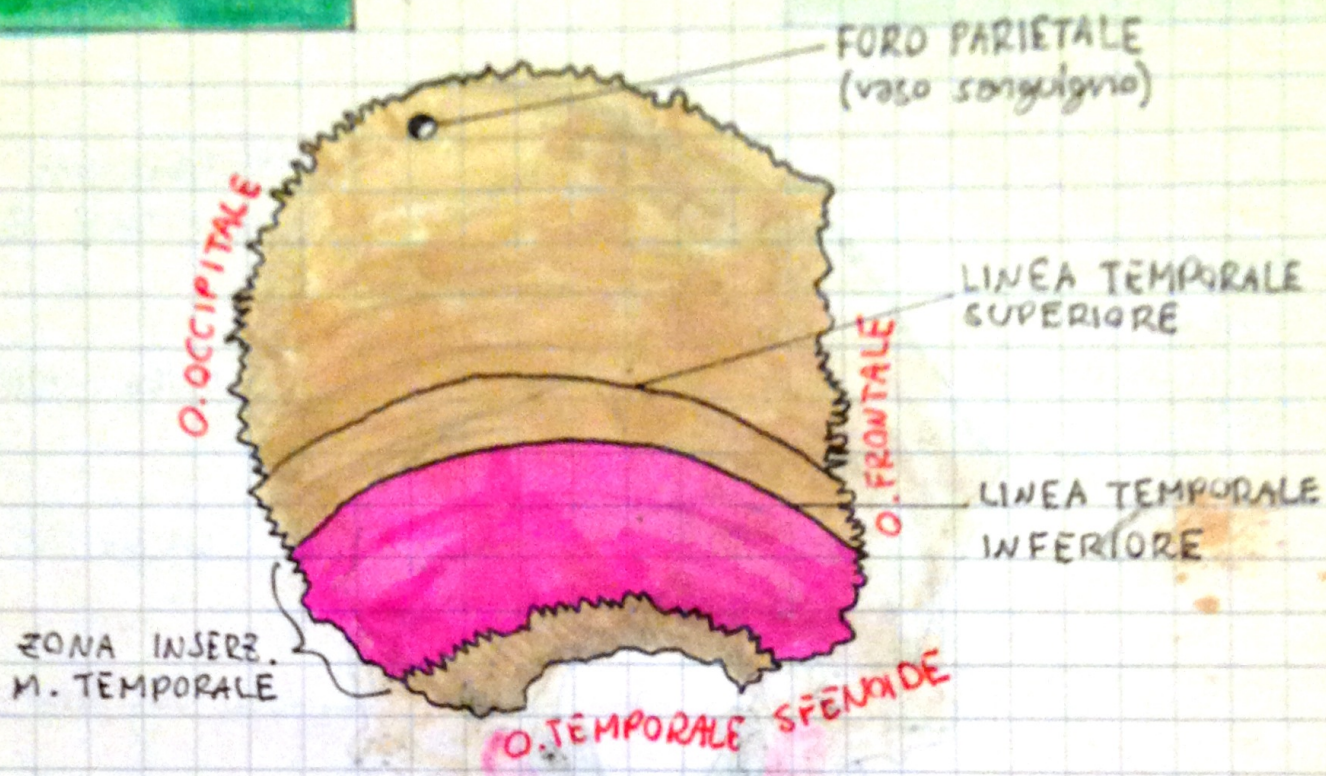 FORO PARIETALE
(vaso sanguigno)
O. OCCIPITALE
LINEA TEMPORALE
SUPERIORE
O. FRONTALE
LINEA TEMPORALE
INFERIORE
ZONA INSERZ.
M. TEMPORALE
O. TEMPORALE
SFENOIDE